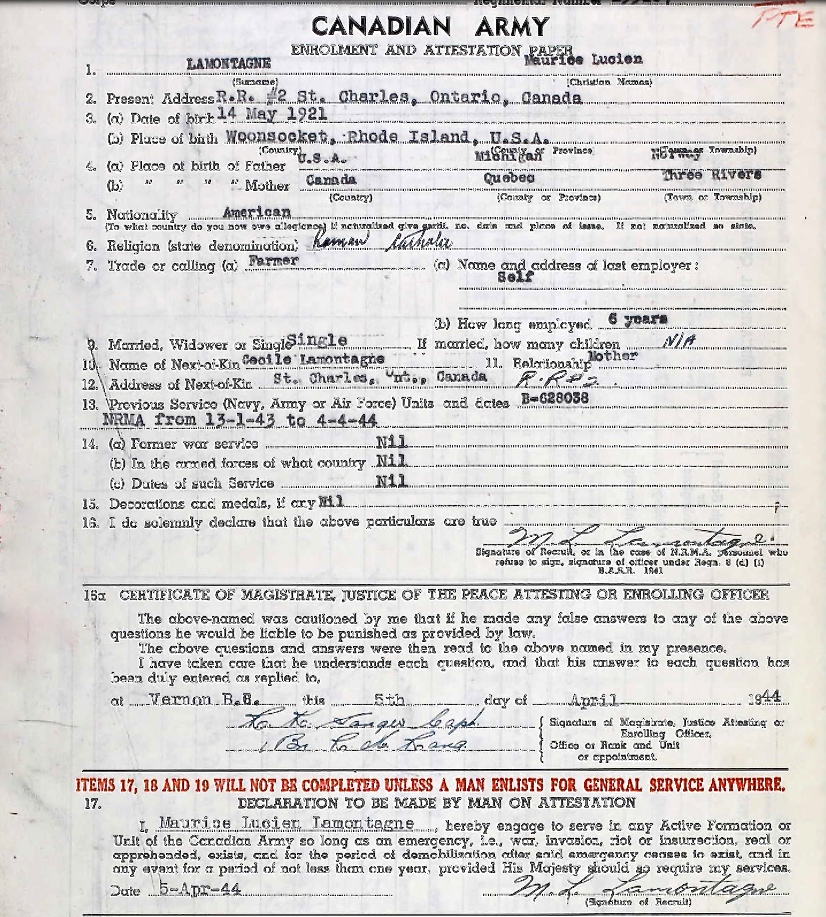 PTE
CANADIAN ARMY
ENROLMENT AND ATTESTATION PAPER
1. LAMONTAGNE Maurice Lucien
(Surname) (Christian Names)
2. Present Address R.R. #2 St. Charles, Ontario, Canada
3. (a) Date of birth 14 May 1921
(b) Place of birth Woonsocket, Rhode Island, U.S.A.
(Country) (County or Province) (Town or Township)
4. (a) Place of birth of Father U.S.A. Michigan
(b) " " " " Mother Canada Quebec Three Rivers
(Country) (County or Province) (Town or Township)
5. Nationality American
(To what country do you now owe allegiance) If naturalized give certif. no. date and place of issue. If not naturalized so state.
6. Religion (state denomination) Roman Catholic
7. Trade or calling (a) Farmer (a) Name and address of last employer:
Self
(b) How long employed 6 years
9. Married, Widower or Single Single If married, how many children N/A
10. Name of Next-of-Kin Cecile Lamontagne 11. Relationship Mother
12. Address of Next-of-Kin St. Charles, Ont., Canada R.R#2.
13. Previous Service (Navy, Army or Air Force) Units and dates B-628038
NRMA from 13-1-43 to 4-4-44
14. (a) Former war service Nil
(b) In the armed forces of what country Nil
(c) Dates of such Service Nil
15. Decorations and medals, if any Nil
16. I do solemnly declare that the above particulars are true
M. L. Lamontagne.
Signature of Recruit, or in the case of N.R.M.A. personnel who
refuse to sign, signature of officer under Regn. 8 (d) (1)
16a CERTIFICATE OF MAGISTRATE, JUSTICE OF THE PEACE ATTESTING OR ENROLLING OFFICER
The above-named was cautioned by me that if he made any false answers to any of the above
questions he would be liable to be punished as provided by law.
The above questions and answers were then read to the above named in my presence.
I have taken care that he understands each question, and that his answer to each question has
been duly entered as replied to,
at Vernon B.C. this 5th day of April 1944
Capt.
Signature of Magistrate, Justice Attesting or
Enrolling Officer.
Office or Rank and Unit
or appointment.
ITEMS 17, 18 AND 19 WILL NOT BE COMPLETED UNLESS A MAN ENLISTS FOR GENERAL SERVICE ANYWHERE.
17. DECLARATION TO BE MADE BY MAN ON ATTESTATION
I, Maurice Lucien Lamontagne, hereby engage to serve in any Active Formation or
Unit of the Canadian Army so long as an emergency, i.e., war, invasion, riot or insurrection, real or
apprehended, exists, and for the period of demobilization after said emergency ceases to exist, and in
any event for a period of not less than one year, provided His Majesty should so require my services.
Date 5-Apr-44 M. L. Lamontagne
(Signature of Recruit)